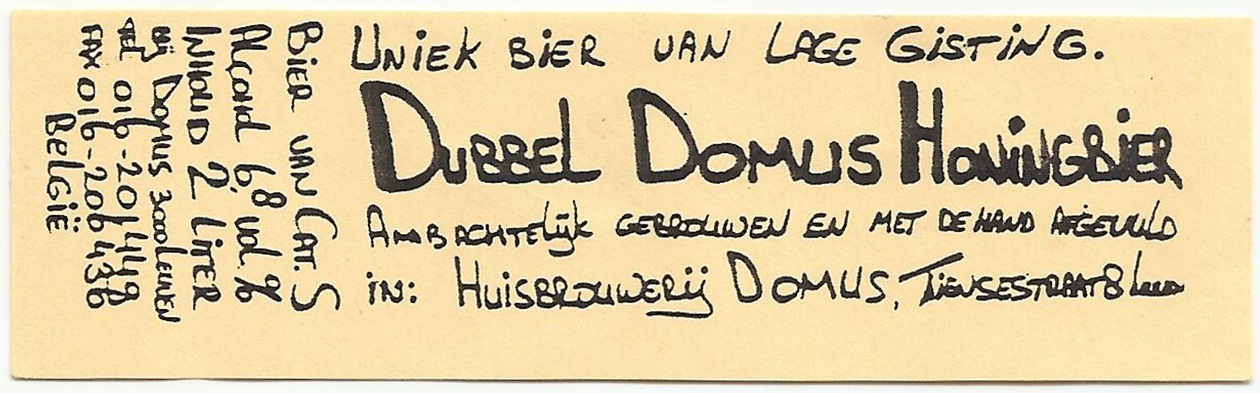 Uniek bier van lage gisting.
Dubbel Domus Honingbier
Ambachtelijk gebrouwen en met de hand afgevuld
in: Huisbrouwerij Domus, Tiensestraat 8 Leuven
Bier van Cat. S
Alcohol 6,8 vol. %
Inhoud 2 liter
Bij Domus 3000 Leuven
Tel 016-201449
Fax 016-206436
België